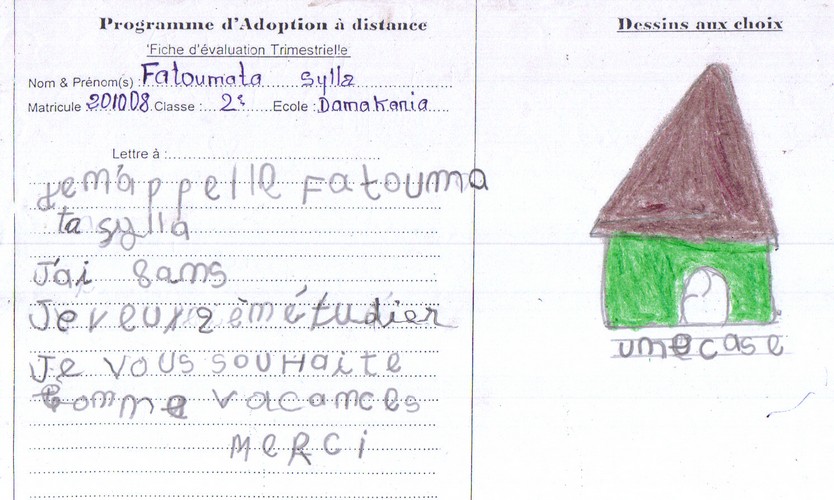 Programme d'Adoption à distance
'Fiche d'évaluation Trimestrielle
Nom & Prénom(s) : Fatoumata Sylla
Matricule 201008 Classe : 2e Ecole : Damakania
Lettre à :
Je m'appelle Fatouma
ta sylla
J'ai 8 ans
Je veux 2èm étudier
Je vous souhaite
bomme vacances
MERCI
Dessins aux choix
une case